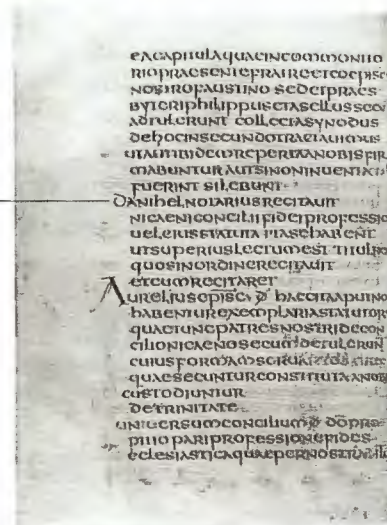 eacapitulaquaeincommonito
riopraesentefratreetcoepisc
nostrofaustino sedetpraes
byteriphilippusetasellussecu
adtulerunt collectasynodus
dehocinsecundotractauimus
utsiibidemrepertaanobisfir
mabunturautsinoninuenta
fuerint silebunt
danihelnotariusrecitauit
nicaeniconciliifideiprofessio
ueleiusstatuta itasehabent
utsuperiuslectumest titulos
quosinordinerecitauit
etcumrecitaret
aureliusepisc dx haecitaapudno
habenturexemplariastatutor
quaetuncpatresnostridecon
cilionicaenosecumdetulerunt
cuiusformam
quaesecunturconstitutaanob
custodiuntur
detrinitate
uniuersumconcilium dx dopro
pitio pariprofessionefides
eclesiasticaquaepernostra